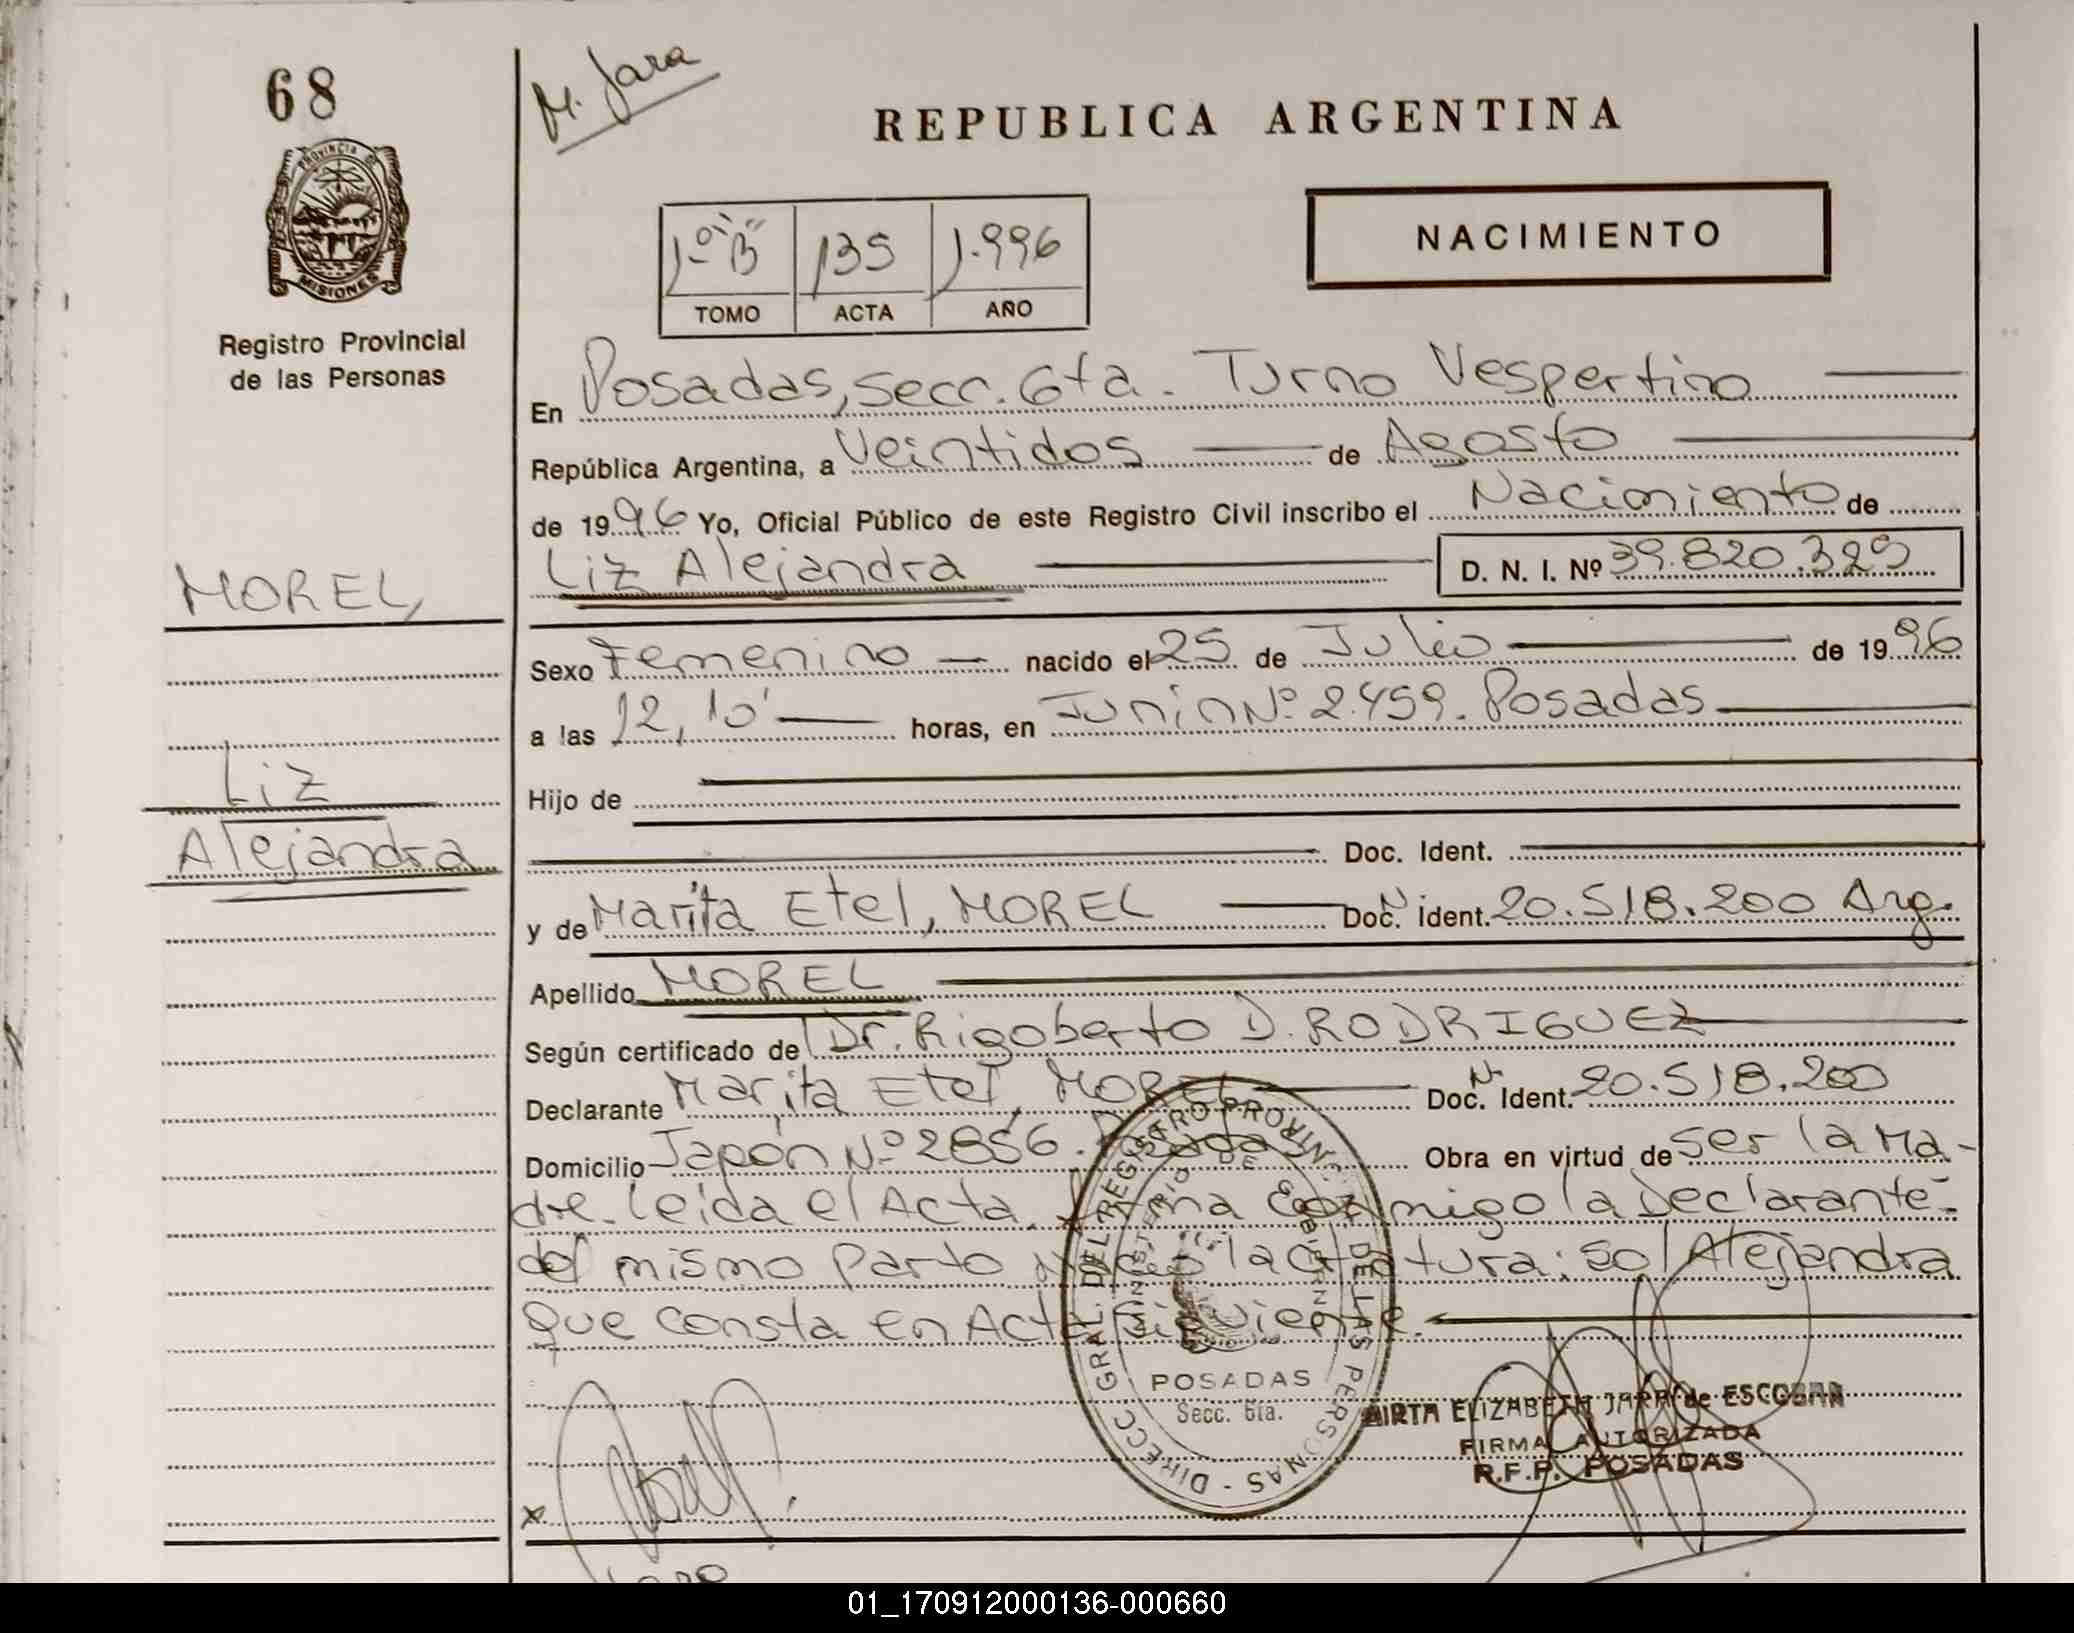 68
M. Jara
REPUBLICA ARGENTINA
PROVINCIA DE
MISIONES
Registro Provincial
de las Personas
1º "B" 135 1.996
TOMO ACTA AÑO
NACIMIENTO
En Posadas, Secc. 6ta. Turno Vespertino
República Argentina, a Veintidos de Agosto
de 1996 Yo, Oficial Público de este Registro Civil inscribo el Nacimiento de
Liz Alejandra D. N. I. Nº 39.820.329
MOREL,
Liz
Alejandra
Sexo Femenino nacido el 25 de Julio de 1996
a las 12,10' horas, en Junin Nº 2.459. Posadas
Hijo de
Doc. Ident.
y de Marita Etel, MOREL Doc. N. Ident. 20.518.200 Arg.
Apellido MOREL
Según certificado de Dr. Rigoberto D. RODRIGUEZ
Declarante Marita Etel, MOREL Doc. N. Ident. 20.518.200
Domicilio Japón Nº 2856. Posadas Obra en virtud de ser la Ma-
dre. leida el Acta. firma conmigo la Declarante-
del mismo parto nació la criatura: Sol Alejandra
que consta en Acta siguiente.
DIRECC. GRAL. DEL REGISTRO PROVINC. DE LAS PERSONAS
MINISTERIO DE GOBIERNO
POSADAS
Secc. 6ta.
MIRTA ELIZABETH JARA de ESCOBAR
FIRMA AUTORIZADA
R.P.P. POSADAS
x
01_170912000136-000660